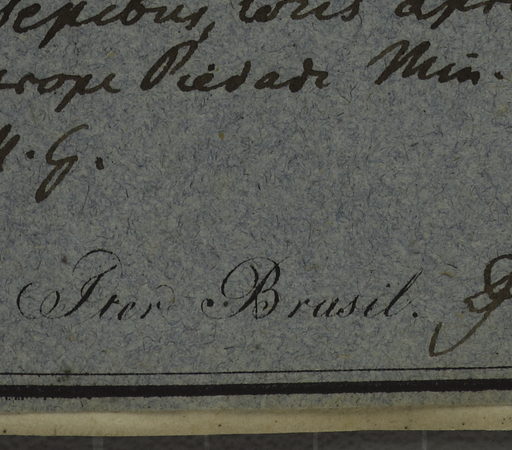 sepibus, locis apri
prope Piedade Min.
M. G.
Iter Brasil.